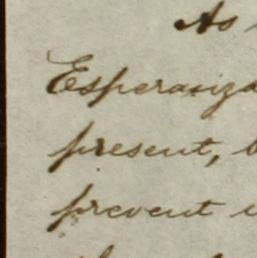 As
Esperanza
present,
prevent